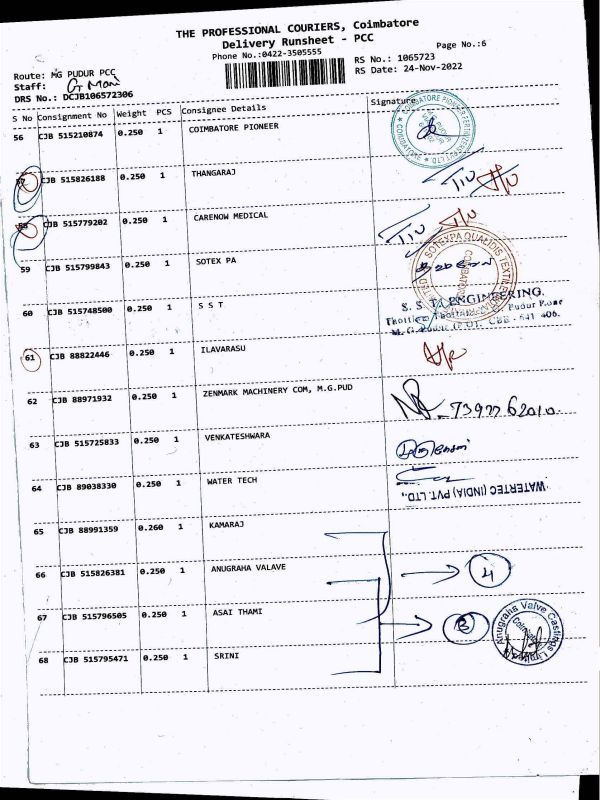 THE PROFESSIONAL COURIERS, Coimbatore
Delivery Runsheet - PCC
Phone No.:0422-3505555
Page No.:6
Route: MG PUDUR PCC
RS No.: 1065723
Staff: G Mani
RS Date: 24-Nov-2022
DRS No.: DCJB106572306
S No Consignment No Weight PCS Consignee Details Signature
56 CJB 515210874 0.250 1 COIMBATORE PIONEER
57 CJB 515826188 0.250 1 THANGARAJ
58 CJB 515779202 0.250 1 CARENOW MEDICAL
59 CJB 515799843 0.250 1 SOTEX PA
SOTEXPA QUALIDIS TEXTILE
60 CJB 515748500 0.250 1 S S T
S. S. T. ENGINEERING.
Thottam, Pudur Road
M. G. Pudur (P.O), CBE - 641 406.
61 CJB 88822446 0.250 1 ILAVARASU
62 CJB 88971932 0.250 1 ZENMARK MACHINERY COM, M.G.PUD
63 CJB 515725833 0.250 1 VENKATESHWARA
64 CJB 89038330 0.250 1 WATER TECH
WATERTEC (INDIA) PVT. LTD.,
65 CJB 88991359 0.260 1 KAMARAJ
66 CJB 515826381 0.250 1 ANUGRAHA VALAVE
4
67 CJB 515796505 0.250 1 ASAI THAMI
3
Anugraha Valve Castings Limited
68 CJB 515795471 0.250 1 SRINI